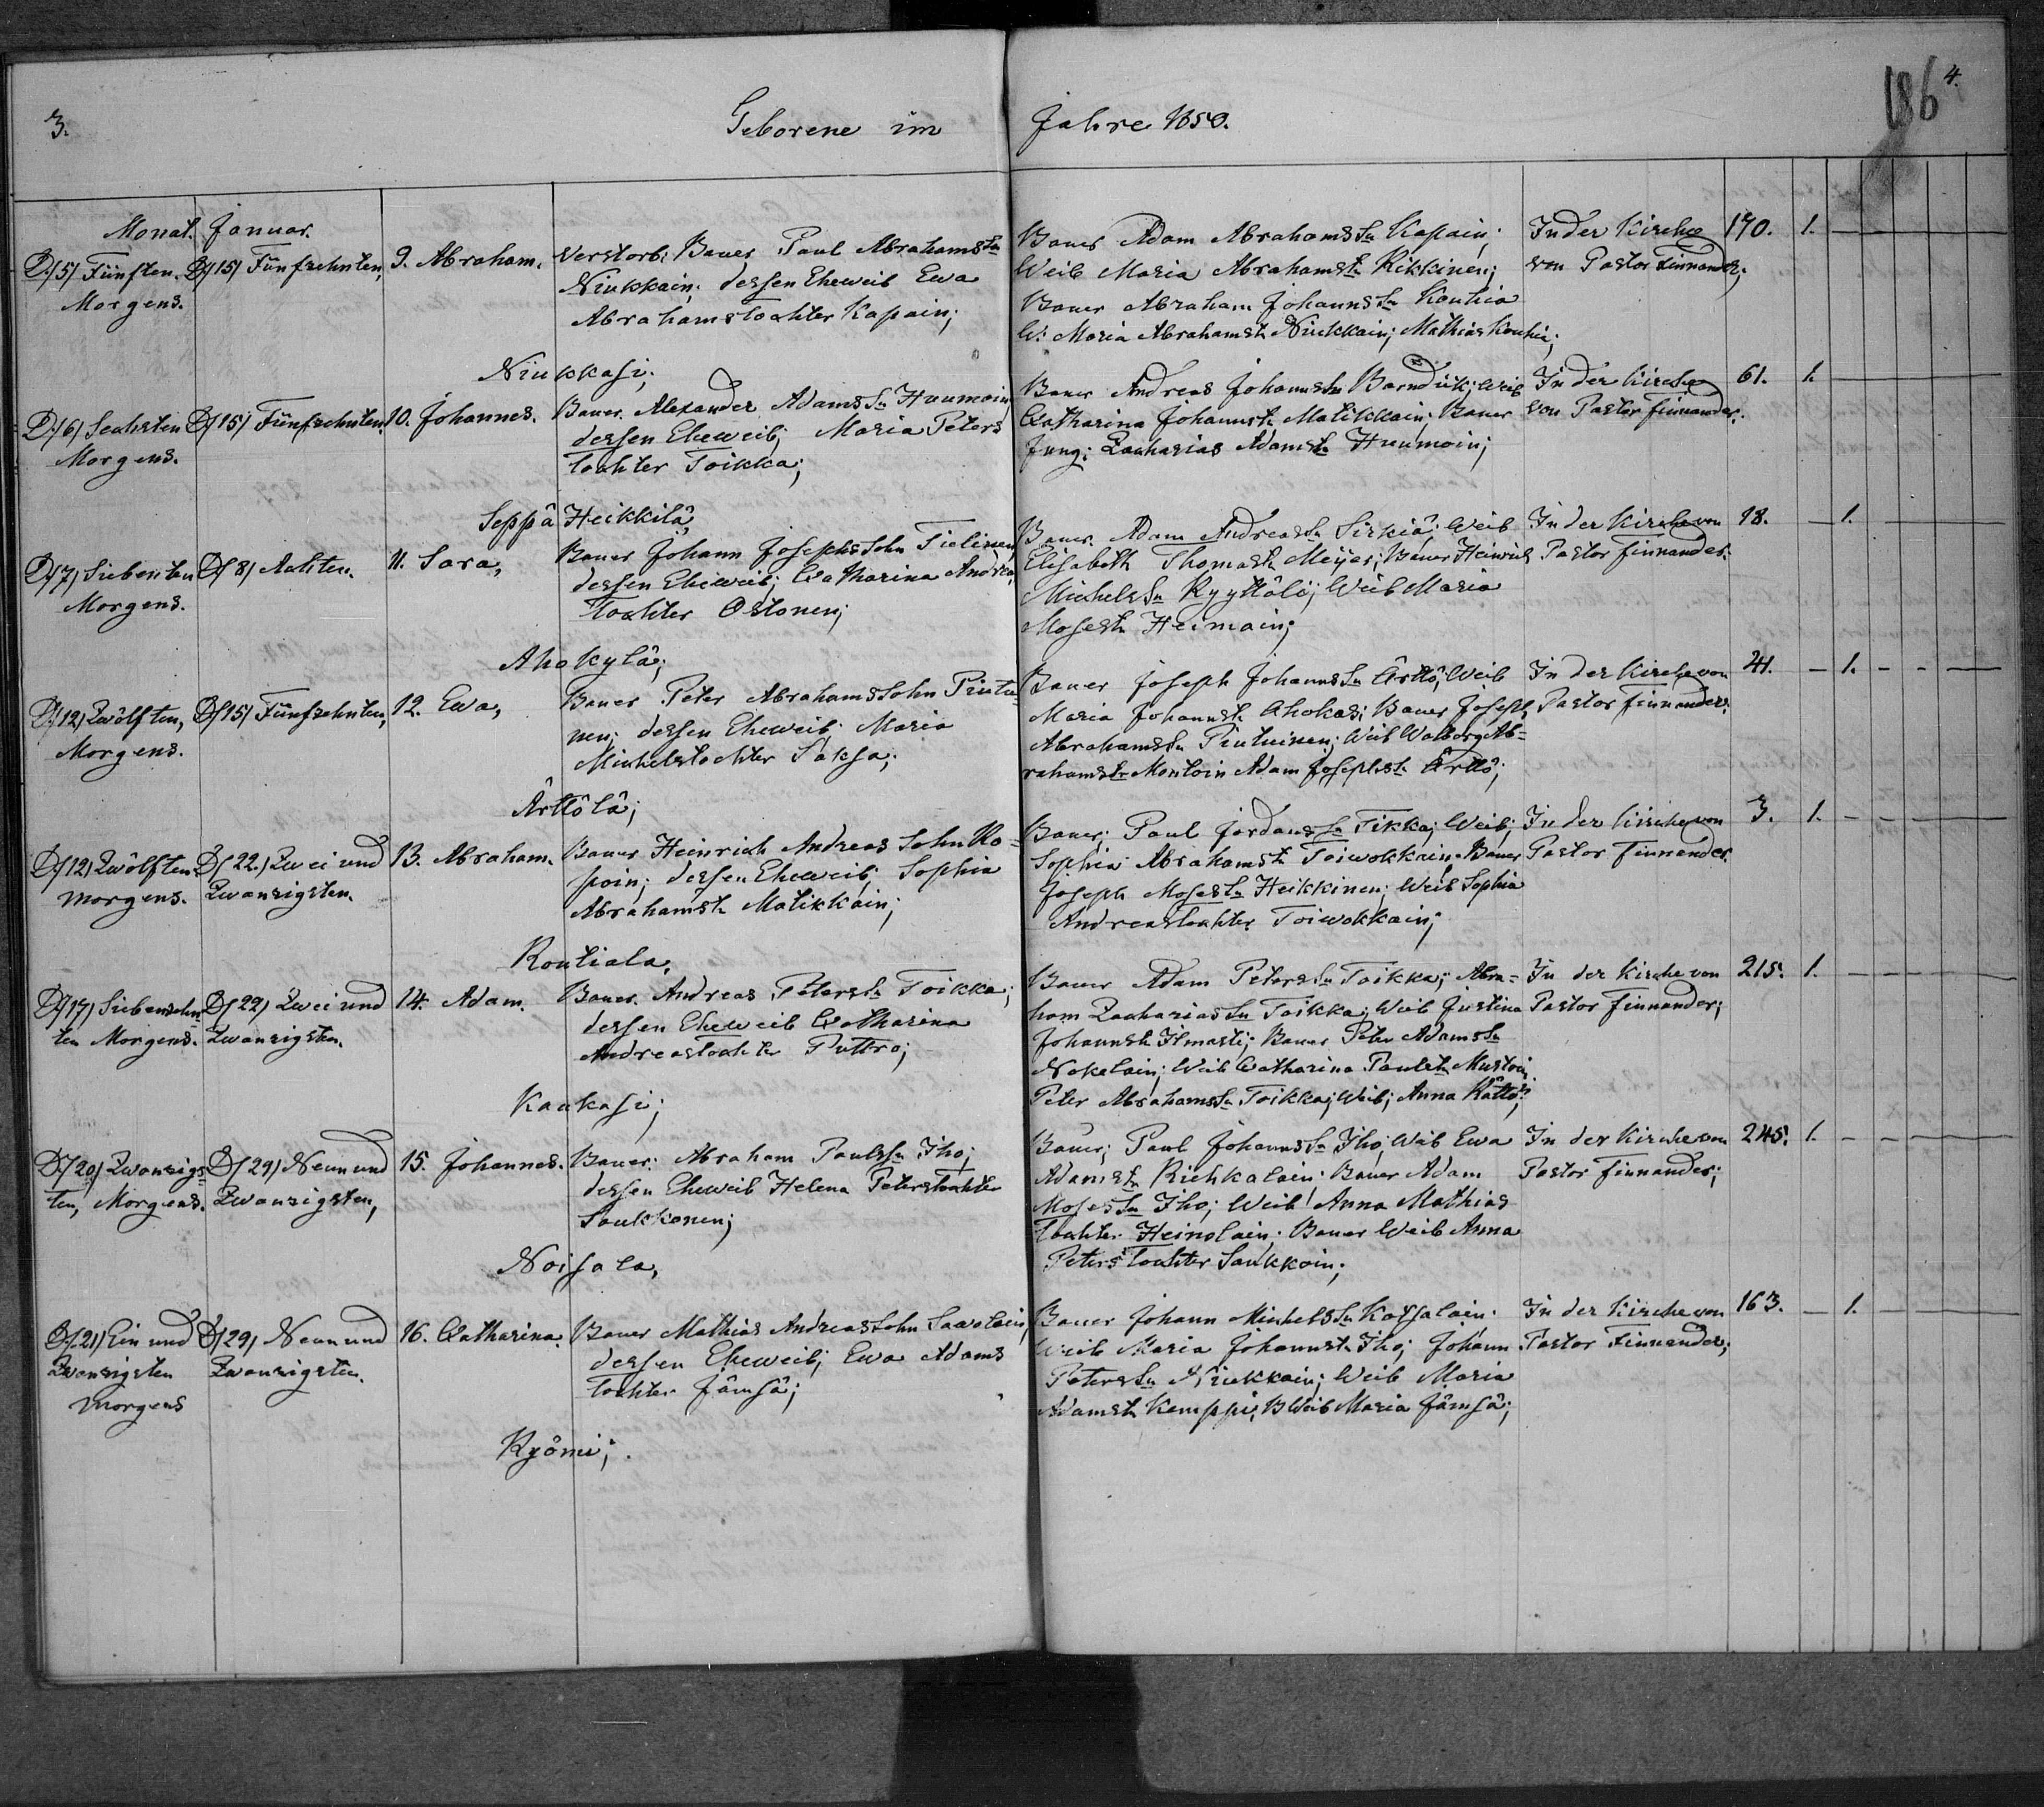 3.
Geborene im Jahre 1850.
186
4.
Monat. Januar.
D./5/ Fünften. D/15/ Fünfzehnten, 9. Abraham. Verstorb: Bauer Paul Abrahamssn
Morgens. Niukkain; dessen Eheweib Ewa
Abrahamstochter Kapain;
Bauer Adam Abrahamssn Kapain; In der Kirche 170. 1.
Weib Maria Abrahamst. Kikkinen; von Pastor Finnander;
Bauer Abraham Johannssn Kouhia
W: Maria Abrahamst. Niukkain; Mathias Kouhia;
Niukkasi;
D./6/ Sechsten D/15/ Fünfzehnten. 10. Johannes. Bauer Alexander Adamssn Huumoin;
Morgens. dessen Eheweib; Maria Peters
tochter Toikka;
Bauer Andreas Johannssn Barndük; Weib In der Kirche 61. 1.
Catharina Johannst. Matikkain; Bauer von Pastor Finnander.
Jung: Zacharias Adamss. Huumoin;
Seppä Heikkilä;
D/7/ Siebenten D/8/ Achten. 11. Sara, Bauer Johann Josephssohn Tielinen
Morgens. dessen Eheweib; Catharina Andrea,
Tochter Ostonen;
Bauer Adam Andreassn Sirkiä; Weib In der Kirche von 18. 1.
Elisabeth Thomast. Meijer; Bauer Heinrich Pastor Finnander.
Michelssn Kyyttölä; Weib Maria
Mosest. Heimain;
Ahokylä;
D/12/ Zwölften, D/15/ Fünfzehnten, 12. Ewa, Bauer Peter Abrahamssohn Piutu
Morgens. nen; dessen Eheweib: Maria
Michelstochter Saksa;
Bauer Joseph Johannssn Ärttö; Weib In der Kirche von 41. 1.
Maria Johannst. Ahokas; Bauer Joseph Pastor Finnander.
Abrahamssn Piutunen; Weib Walborg Ab=
rahamst. Montoin Adam Josephss. Ärttö;
Ärttölä;
D/12/ Zwölften D/22./ Zwei und 13. Abraham. Bauer Heinrich Andreas Sohn Ro=
morgens. Zwanzigsten. poin; dessen Eheweib; Sophia
Abrahamst. Matikkain;
Bauer; Paul Jordanssn Tikka; Weib; In der Kirche von 3. 1.
Sophia Abrahamst. Toiwokkain; Bauer Pastor Finnander.
Joseph Mosessn Heikkinen; Weib Sophia
Andreastochter Toiwokkain;
Routiala;
D/17/ Siebenzehn D/22/ Zwei und 14. Adam. Bauer Andreas Peterss. Toikka;
ten Morgens. Zwanzigsten. dessen Eheweib Catharina
Andreastochter Puttro;
Bauer Adam Peterssn Toikka; Abra= In der Kirche von 215. 1.
ham Zachariassn Toikka; Weib Justina Pastor Finnander;
Johannst. Ihnasti; Bauer Peter Adamssn
Nokelain; Weib Catharina Paulst. Mustoin
Peter Abrahamss. Toikka; Weib; Anna Rättö;
Kaukasi;
D./20/ Zwanzigs= D/29/ Neun und 15. Johannes. Bauer: Abraham Paulssn Iho;
ten, Morgens. Zwanzigsten, dessen Eheweib Helena Peterstochter
Saukkonen;
Bauer; Paul Johannssn Iho; Weib Ewa In der Kirche von 245. 1.
Adamst. Kichkalain; Bauer Adam Pastor Finnander;
Mosessn Iho; Weib Anna Mathias
tochter Heinolain; Bauer Weib Anna
Peterstochter Saukkoin;
Noisala,
D/21/ Ein und D/29/ Neun und 16. Catharina. Bauer Mathias Andreassohn Sawolain;
Zwanzigsten Zwanzigsten. dessen Eheweib; Ewa Adams
morgens tochter Jämsä;
Bauer Johann Michelssn Kotsalain; In der Kirche von 163. 1.
Weib Maria Johannst. Iho; Johann Pastor Finnander;
Peterssn Niukkain; Weib Maria
Adamst. Kemppi; B Weib Maria Jämsä;
Kyömi;